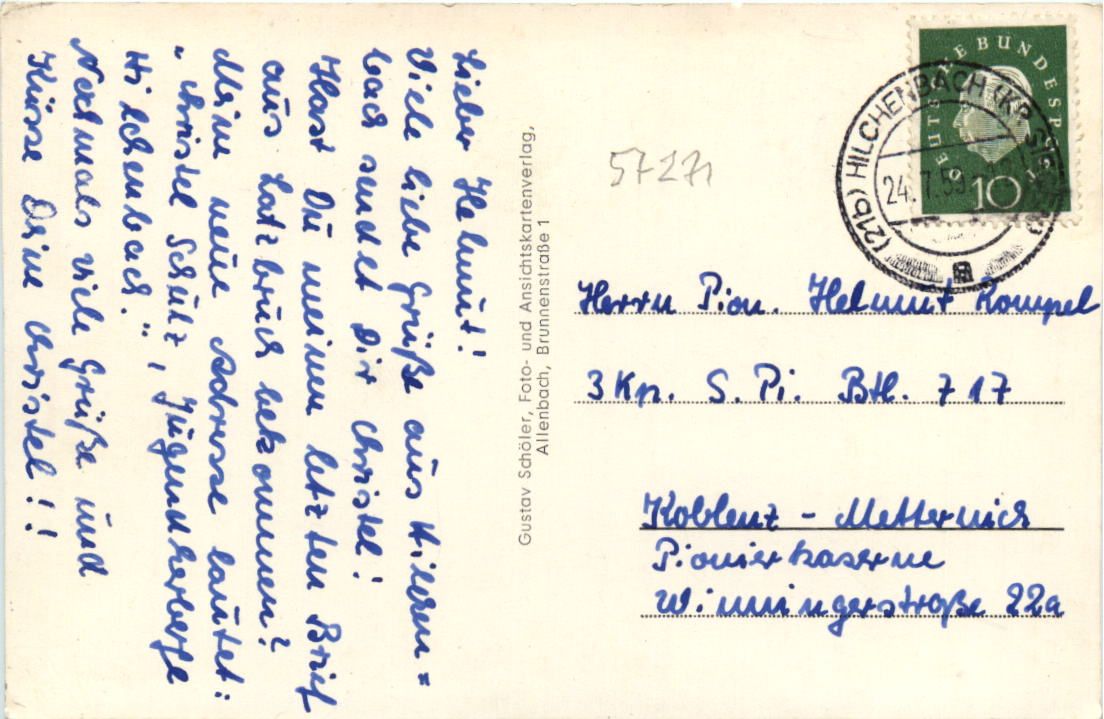 Lieber Helmut!
Viele liebe Grüße aus Hilchen=
bach sendet Dir Christel!
Hast Du meinen letzten Brief
aus Latzbruch bekommen?
Meine neue Adresse lautet:
"Christel Schulz, Jugendherberge
Hilchenbach."
Nochmals viele Grüße und
Küsse Deine Christel!!
Gustav Schöler, Foto- und Ansichtskartenverlag,
Allenbach, Brunnenstraße 1
57271
DEUTSCHE BUNDESPOST
10
(21b) HILCHENBACH (KR. SIEGEN)
24.7.59
Herrn Pion. Helmut Kompel
3 Kp. S. Pi. Btl. 717
Koblenz - Metternich
Pionierkaserne
Winningerstroße 22a